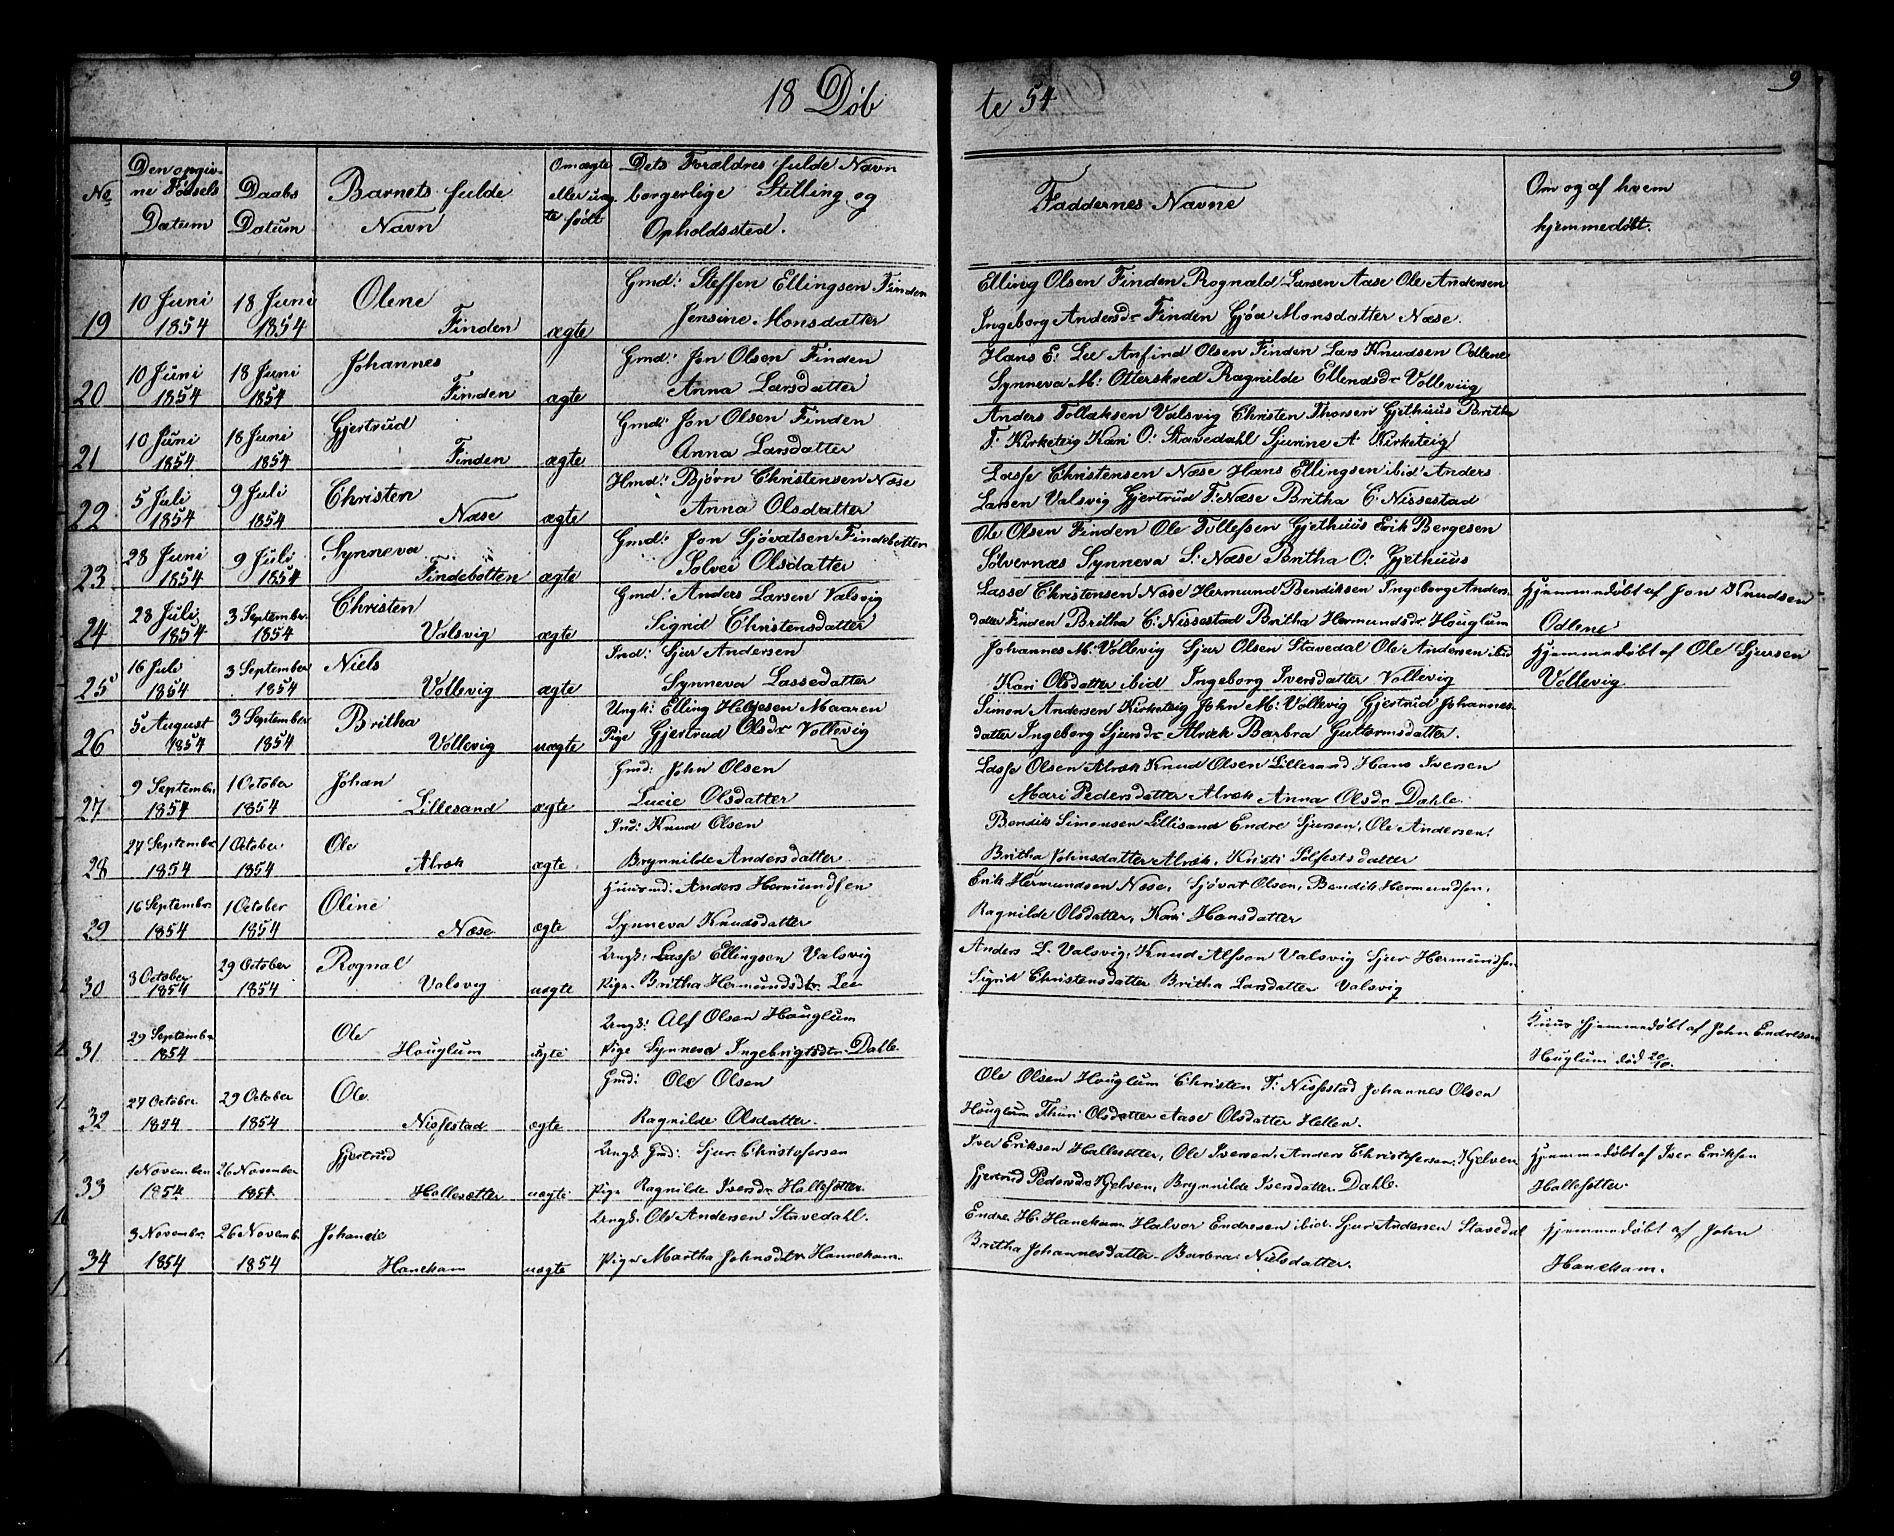 18 Døb te 54 9
No Den opgivne Fødsels Datum Daabs Datum Barnets fulde Navn Om ægte eller uægte født Dets Forældres fulde Navn borgerlige Stilling og Opholdssted. Faddernes Navne Om og af hvem hjemmedøbt.
19 10 Juni 1854 18 Juni 1854 Olene Finden ægte Gmd: Steffen Ellingsen Finden Jensine Monsdatter Elling Olsen Finden Rognald Larsen Aase Ole Andersen Ingeborg Andersdr Finden Gjøa Monsdatter Næse.
20 10 Juni 1854 18 Juni 1854 Johannes Finden ægte Gmd: Jon Olsen Finden Anna Larsdatter Hans E: Lee Anfind Olsen Finden Lars Knudsen Odlene Synneva M: Otterskred Ragnilde Ellendsdr Vollevig
21 10 Juni 1854 18 Juni 1854 Gjertrud Finden ægte Gmd: Jon Olsen Finden Anna Larsdatter Anders Tollaksen Valsvig Christen Thorsen Gjethuus Britha T: Kirketeig Kari O: Stavedahl Sjurine A Kirketeig
22 5 Juli 1854 9 Juli 1854 Christen Næse ægte Hmd: Bjørn Christensen Næse Anna Olsdatter Lasse Christensen Næse Hans Ellingsen ibid Anders Larsen Valsvig Gjertrud T: Næse Britha C: Nissestad
23 28 Juni 1854 9 Juli 1854 Synneva Findebotten ægte Gmd: Jon Sjøvatsen Findebotten Solvei Olsdatter Ole Olsen Finden Ole Tollefsen Gjethuus Erik Bergesen Solvernæs Synneva S: Næse Britha O: Gjethuus
24 28 Juli 1854 3 September 1854 Christen Valsvig ægte Gmd: Anders Larsen Valsvig Sigrid Christensdatter Lasse Christensen Næse Hermund Bendiksen Ingeborg Andersdatter Finden Britha C: Nissestad Britha Hermundsdr Houglum Hjemmedøbt af Jon Knudsen Odlene
25 16 Juli 1854 3 September 1854 Niels Vollevig ægte Ind: Sjur Andersen Synneva Lassedatter Johannes M: Vollevig Sjur Olsen Stavedal Ole Andersen ibid Kari Olsdatter ibid Ingeborg Iversdatter Vollevig Hjemmedøbt af Ole Sjursen Vollevig
26 5 August 1854 3 September 1854 Britha Vollevig uægte Ungk: Elling Helgesen Maaren Pige Gjertrud Olsdr Vollevig Simon Andersen Kirketeig John M: Vollevig Gjertrud Johannesdatter Ingeborg Sjursdr Alræk Barbra Guttormsdatter.
27 9 Septembr. 1854 1 October 1854 Johan Lillesand ægte Gmd: John Olsen Lucie Olsdatter Lasse Olsen Alræk Knud Olsen Lillesand Hans Iversen Mari Pedersdatter Alræk Anna Olsdr Dahle.
28 27 Septembr 1854 1 October 1854 Ole Alræk ægte Ind: Knud Olsen Brynnilde Andersdatter Bendik Simonsen Lillisand Endre Sjursen, Ole Andersen, Britha Johnsdatter Alræk, Kristi Solfestsdatter
29 16 Septembr. 1854 1 October 1854 Oline Næse ægte Huusmd: Anders Hermundsen Synneva Knudsdatter Erik Hermundsen Næse, Sjøvat Olsen, Bendik Hermundsen, Ragnilde Olsdatter, Kari Hansdatter
30 3 October 1854 29 October 1854 Rognal Valsvig uægte Ungk: Lasse Ellingsen Valsvig Pige Britha Hermundsdtr Lee Anders L. Valsvig, Knud Alfson Valsvig Sjur Hermundsen Sigrid Christensdatter Britha Larsdatter Valsvig
31 29 Septembr 1854 Ole Houglum uægte Ungk: Alf Olsen Houglum Pige Synneva Ingebrigtsdtr Dahle. Kuns hjemmedøbt af John Endresen Houglum død 20/10.
32 27 October 1854 29 October 1854 Ole Nissestad ægte Gmd: Ole Olsen Ragnilde Olsdatter. Ole Olsen Houglum Christen T: Nissestad Johannes Olsen Houglum Thuri Olsdatter Aase Olsdatter Hellen.
33 1 November 1854 26 November 1854 Gjertrud Hallesætter uægte Ungk Gmd: Sjur Christofersen Pige Ragnilde Iversdr Hallesætter. Iver Eriksen Hallesætter, Ole Iversen, Anders Christofersen Hjelven, Gjertrud Pedersdr Hjelven, Brynnilde Iversdatter Dahle. Hjemmedøbt af Iver Eriksen Hallesætter.
34 3 Novembr. 1854 26 Novembr 1854 Johande Hanekam uægte Ungk. Ole Andersen Stavedahl. Pige Martha Johnsdtr Hannekam. Endre H: Hanekam Halvor Endresen ibid. Sjur Andersen Stavedal Britha Johannesdatter Barbra Nielsdatter. Hjemmedøbt af John Hanekam.